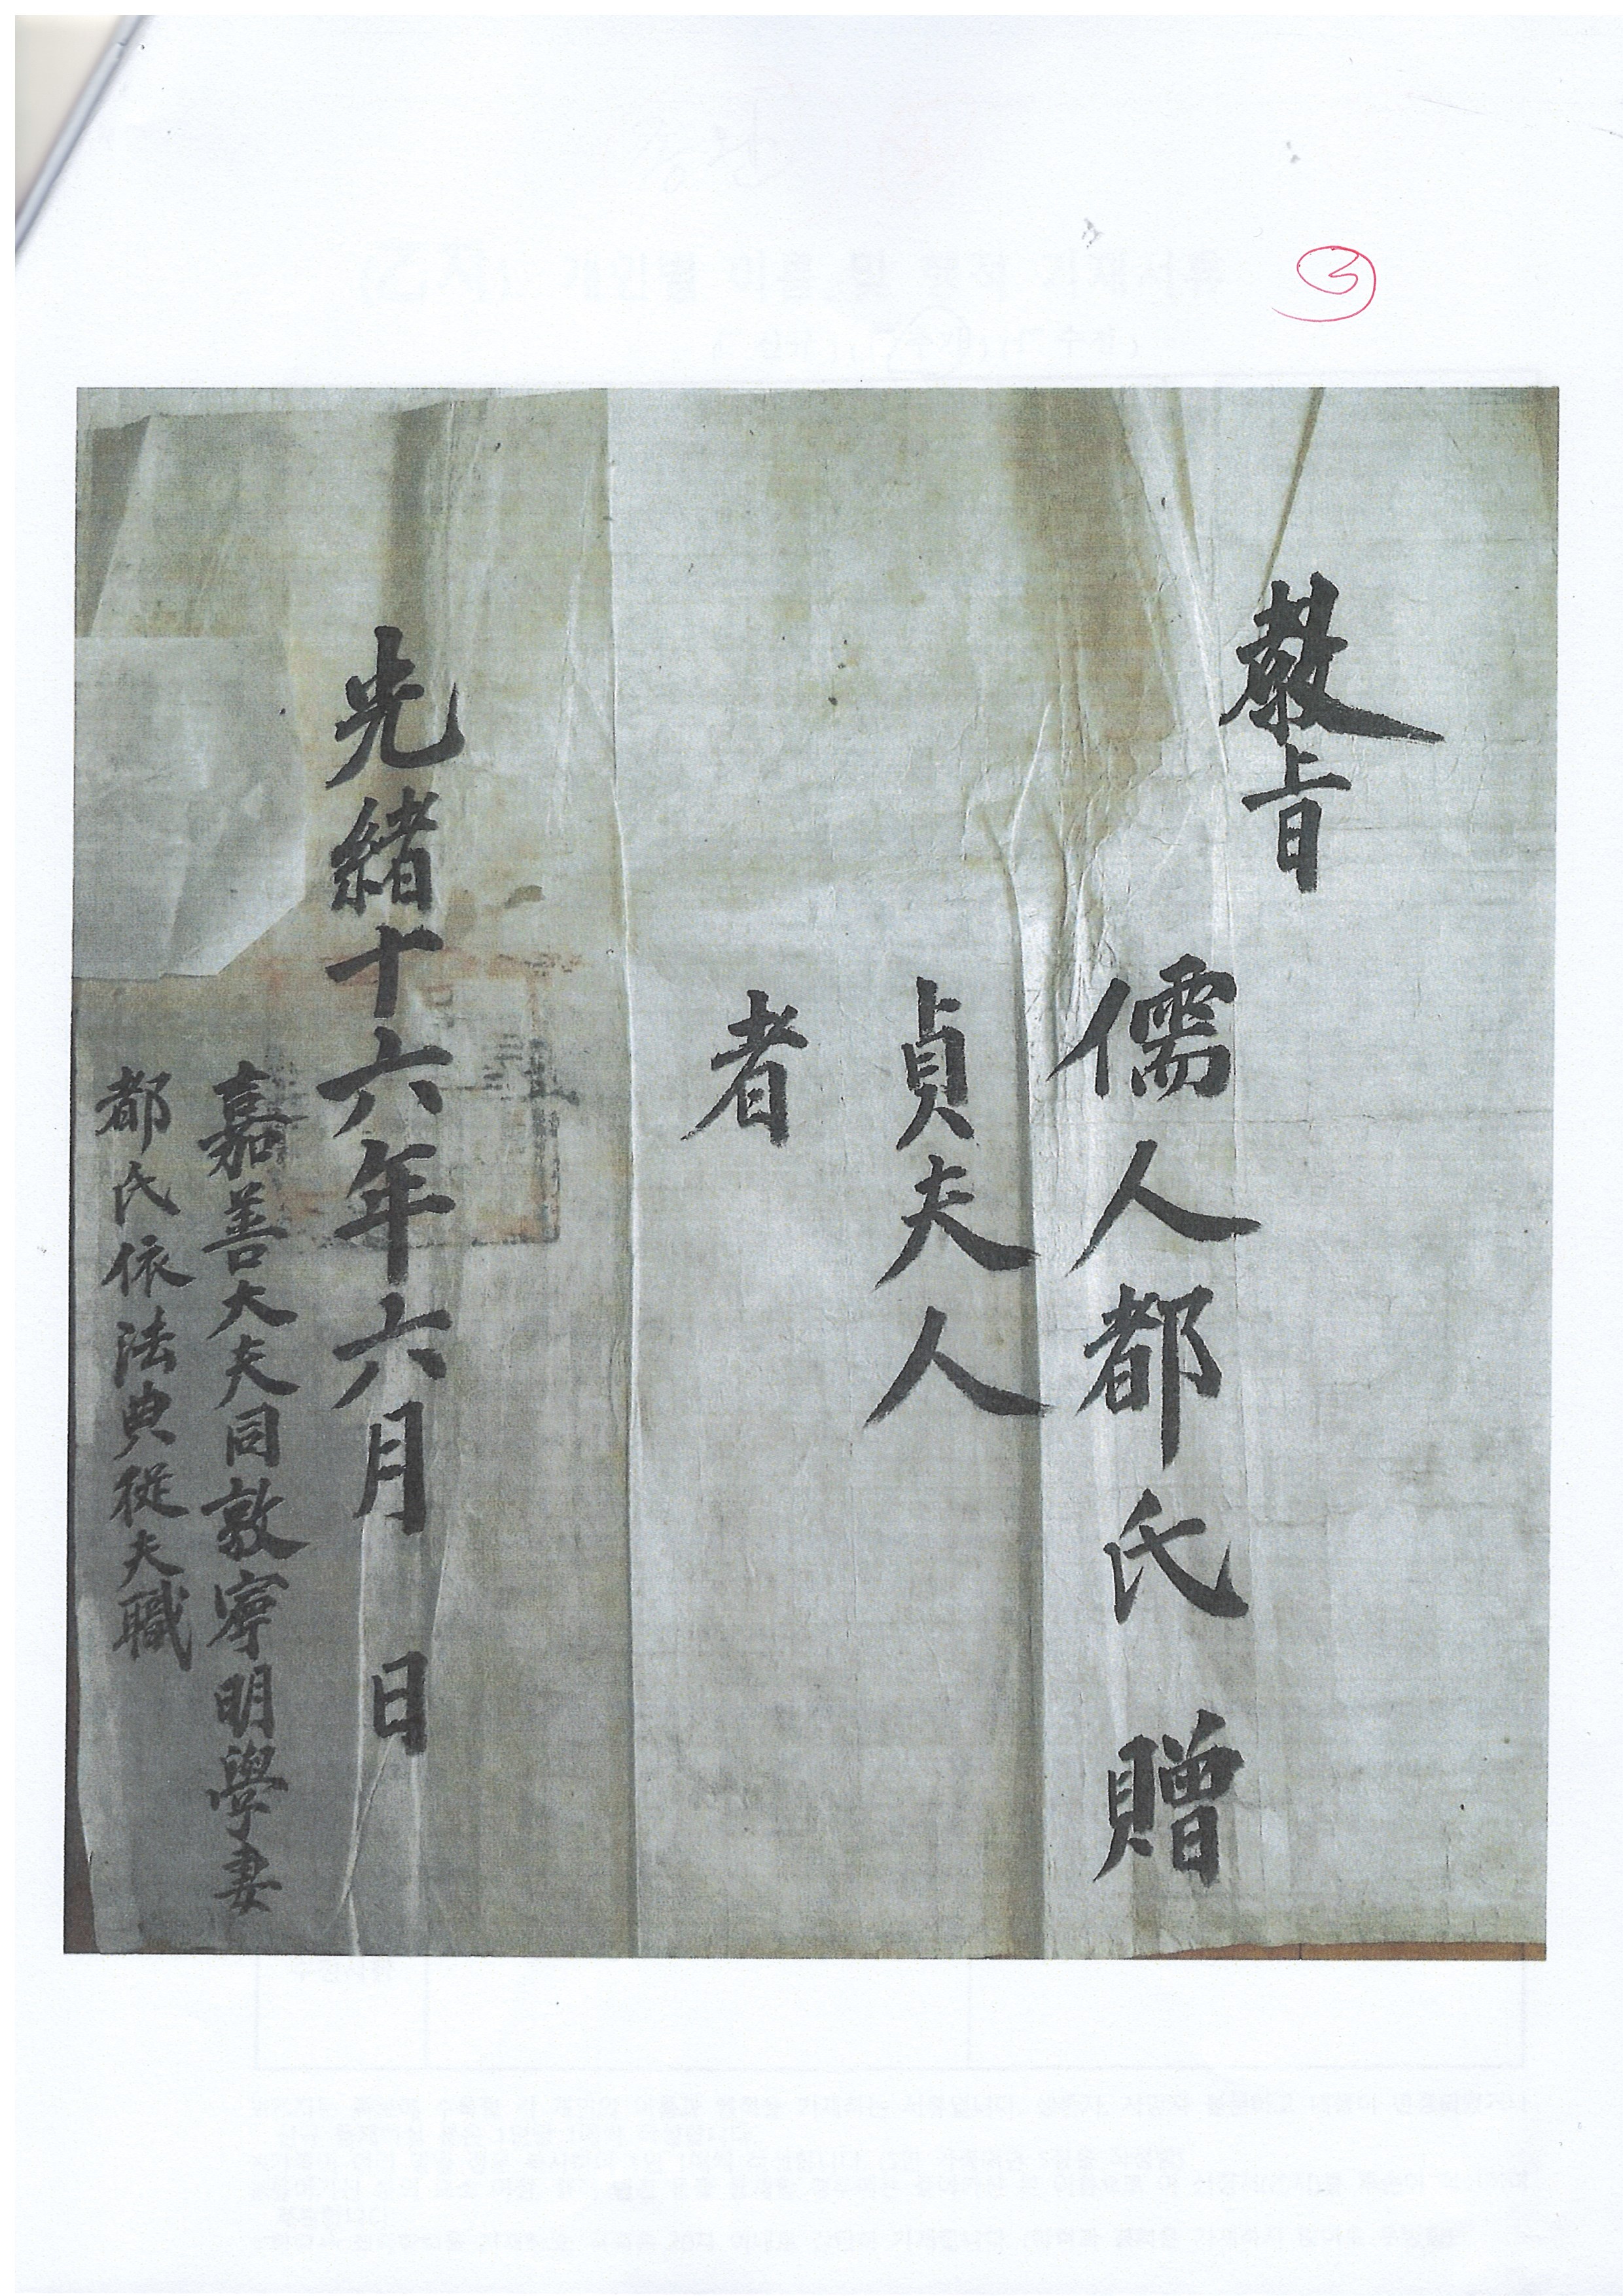 ③
敎旨
儒人都氏 贈
貞夫人
者
光緖十六年六月 日
嘉善大夫同敦寧明學妻
都氏依法典從夫職